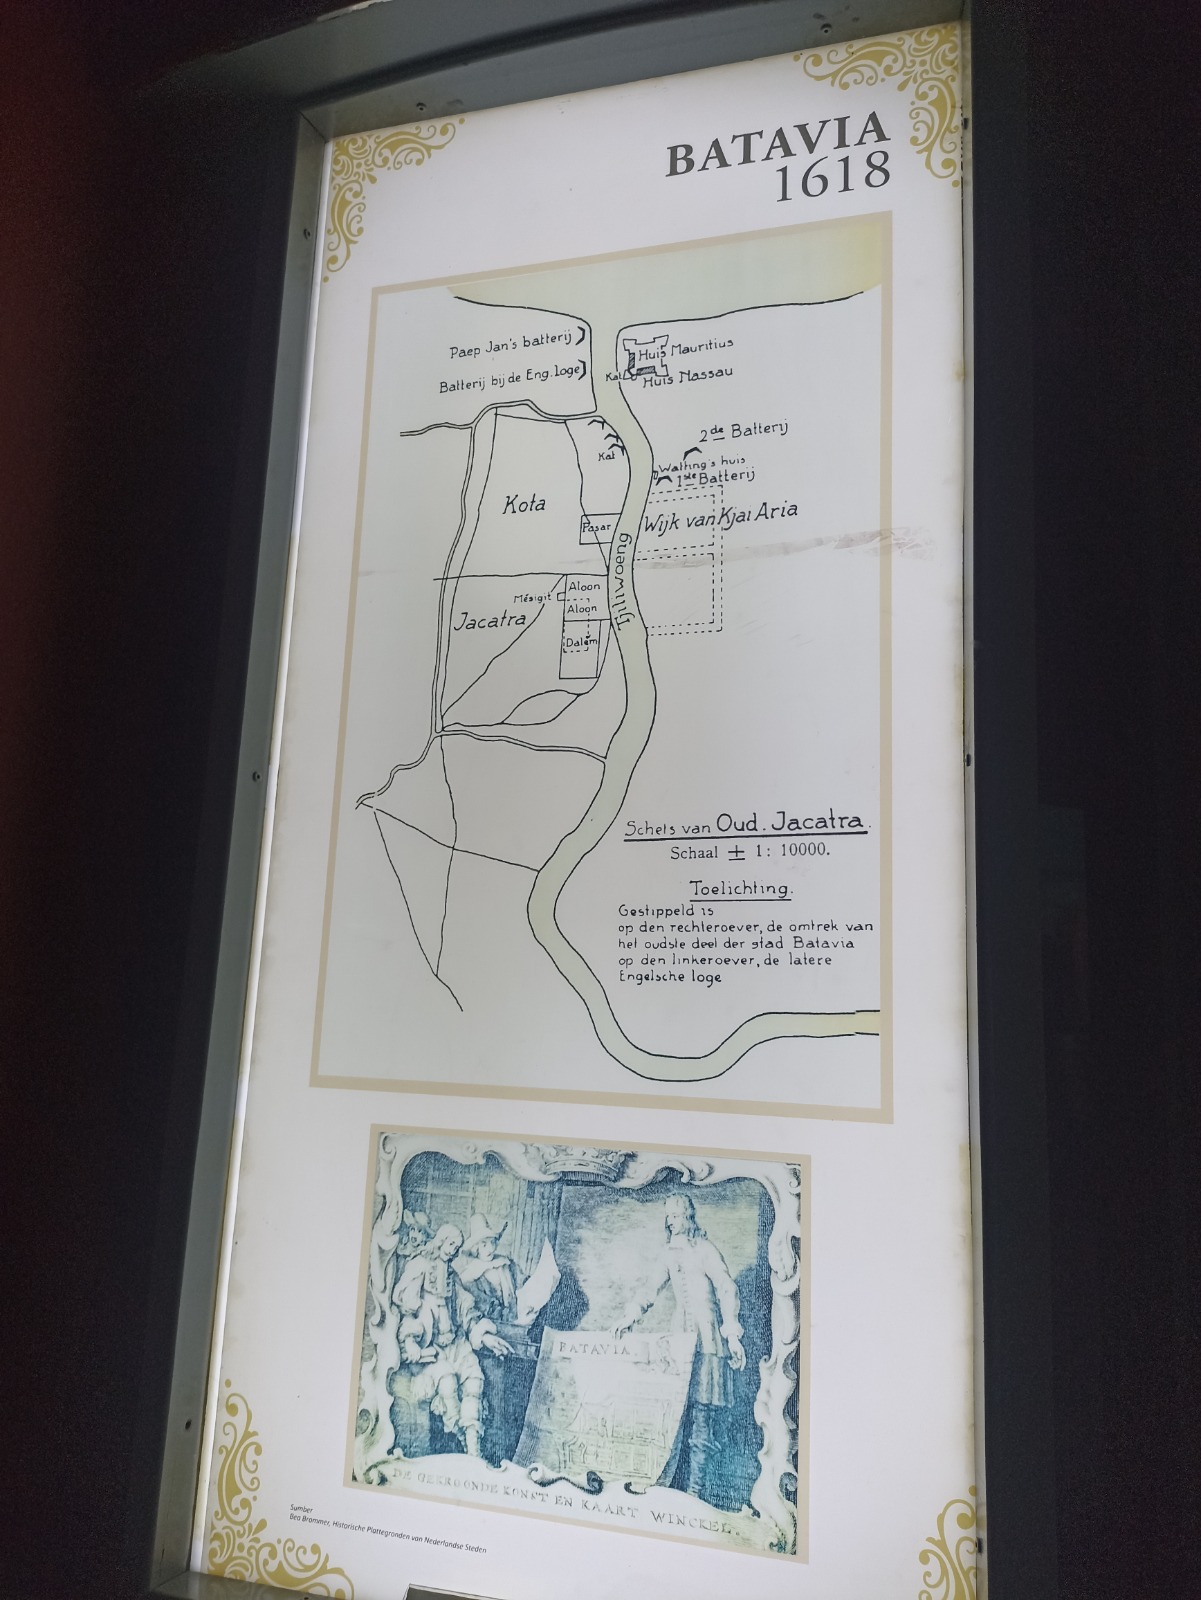 BATAVIA
1618
Paep Jan's batterij
Huis Mauritius
Batterij bij de Eng. loge
Kat
Huis Nassau
2de Batterij
Kat
Watting's huis
1ste Batterij
Kota
Pasar
Wijk van Kjai Aria
Tjiliwoeng
Mésigit
Aloon
Aloon
Jacatra
Dalem
Schets van Oud. Jacatra.
Schaal ± 1: 10000.
Toelichting.
Gestippeld is
op den rechteroever, de omtrek van
het oudste deel der stad Batavia
op den linkeroever, de latere
Engelsche loge
BATAVIA.
DE GEKROONDE KONST EN KAART WINCKEL.
Sumber
Bea Brommer, Historische Plattegronden van Nederlandse Steden